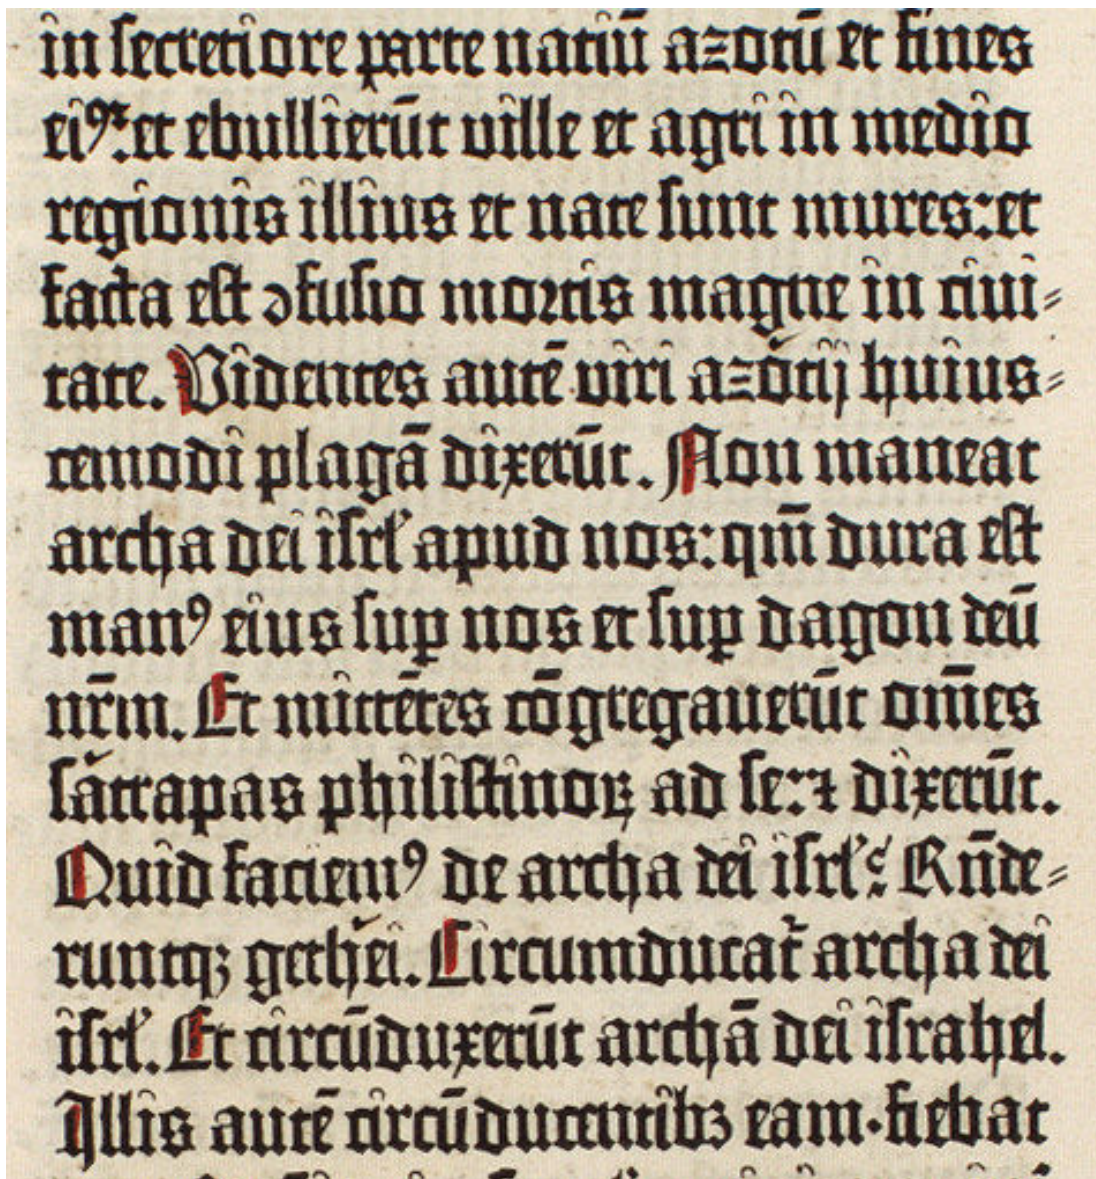 in secretiore parte natiū azotū et fines
eiꝰ: et ebullierūt ville et agri in medio
regionis illius et nate sunt mures: et
facta est ↄfusio mortis magne in ciui⸗
tate. Videntes autē viri azotij huius⸗
cemodi plagā dixerūt. Non maneat
archa dei isrl’ apud nos: qm̄ dura est
manꝰ eius suꝑ nos et suꝑ dagon deū
nr̄m. Et mittētes cōgregauerūt om̄es
satrapas philistinoꝝ ad se: ⁊ dixerūt.
Quid faciemꝰ de archa dei isrl’? Rn̄de⸗
runtqꝫ gethei. Circumducat̄ archa dei
isrl’. Et circūduxerūt archā dei israhel.
Illis autē circūducentibꝫ eam·fiebat